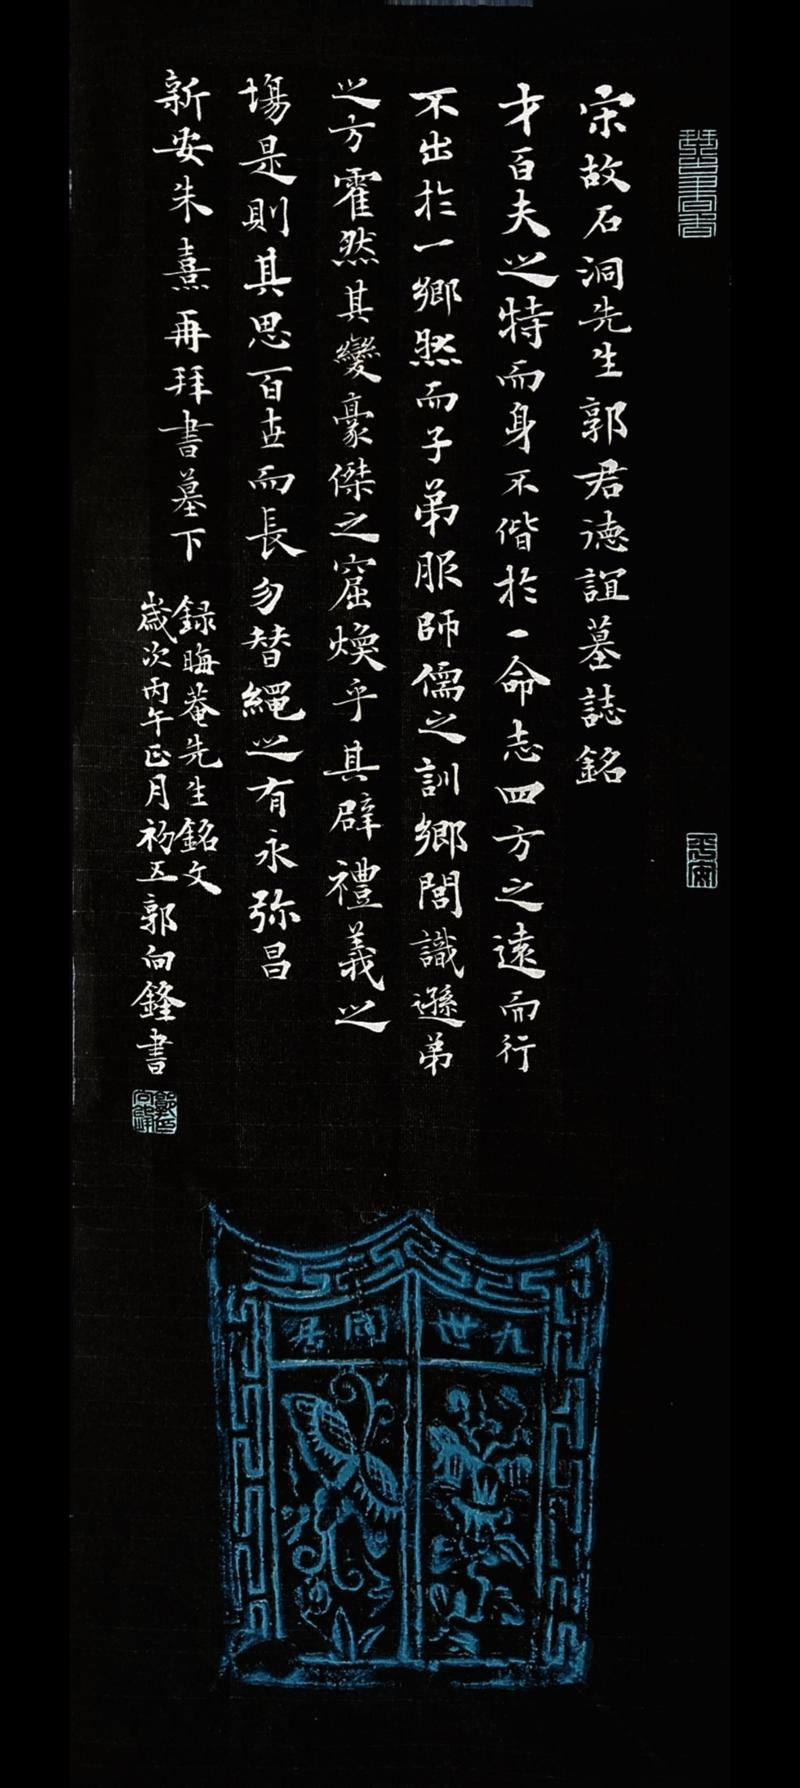 宋故石洞先生郭君德誼墓誌銘
才百夫之特而身不偕於一命志四方之遠而行
不出於一鄉然而子弟服師儒之訓鄉閭識遜弟
之方霍然其變豪傑之窟煥乎其辟禮義之
場是則其思百世而長勿替繩之有永弥昌
新安朱熹再拜書墓下
録晦菴先生銘文
歲次丙午正月初五郭向鋒書
九世同居